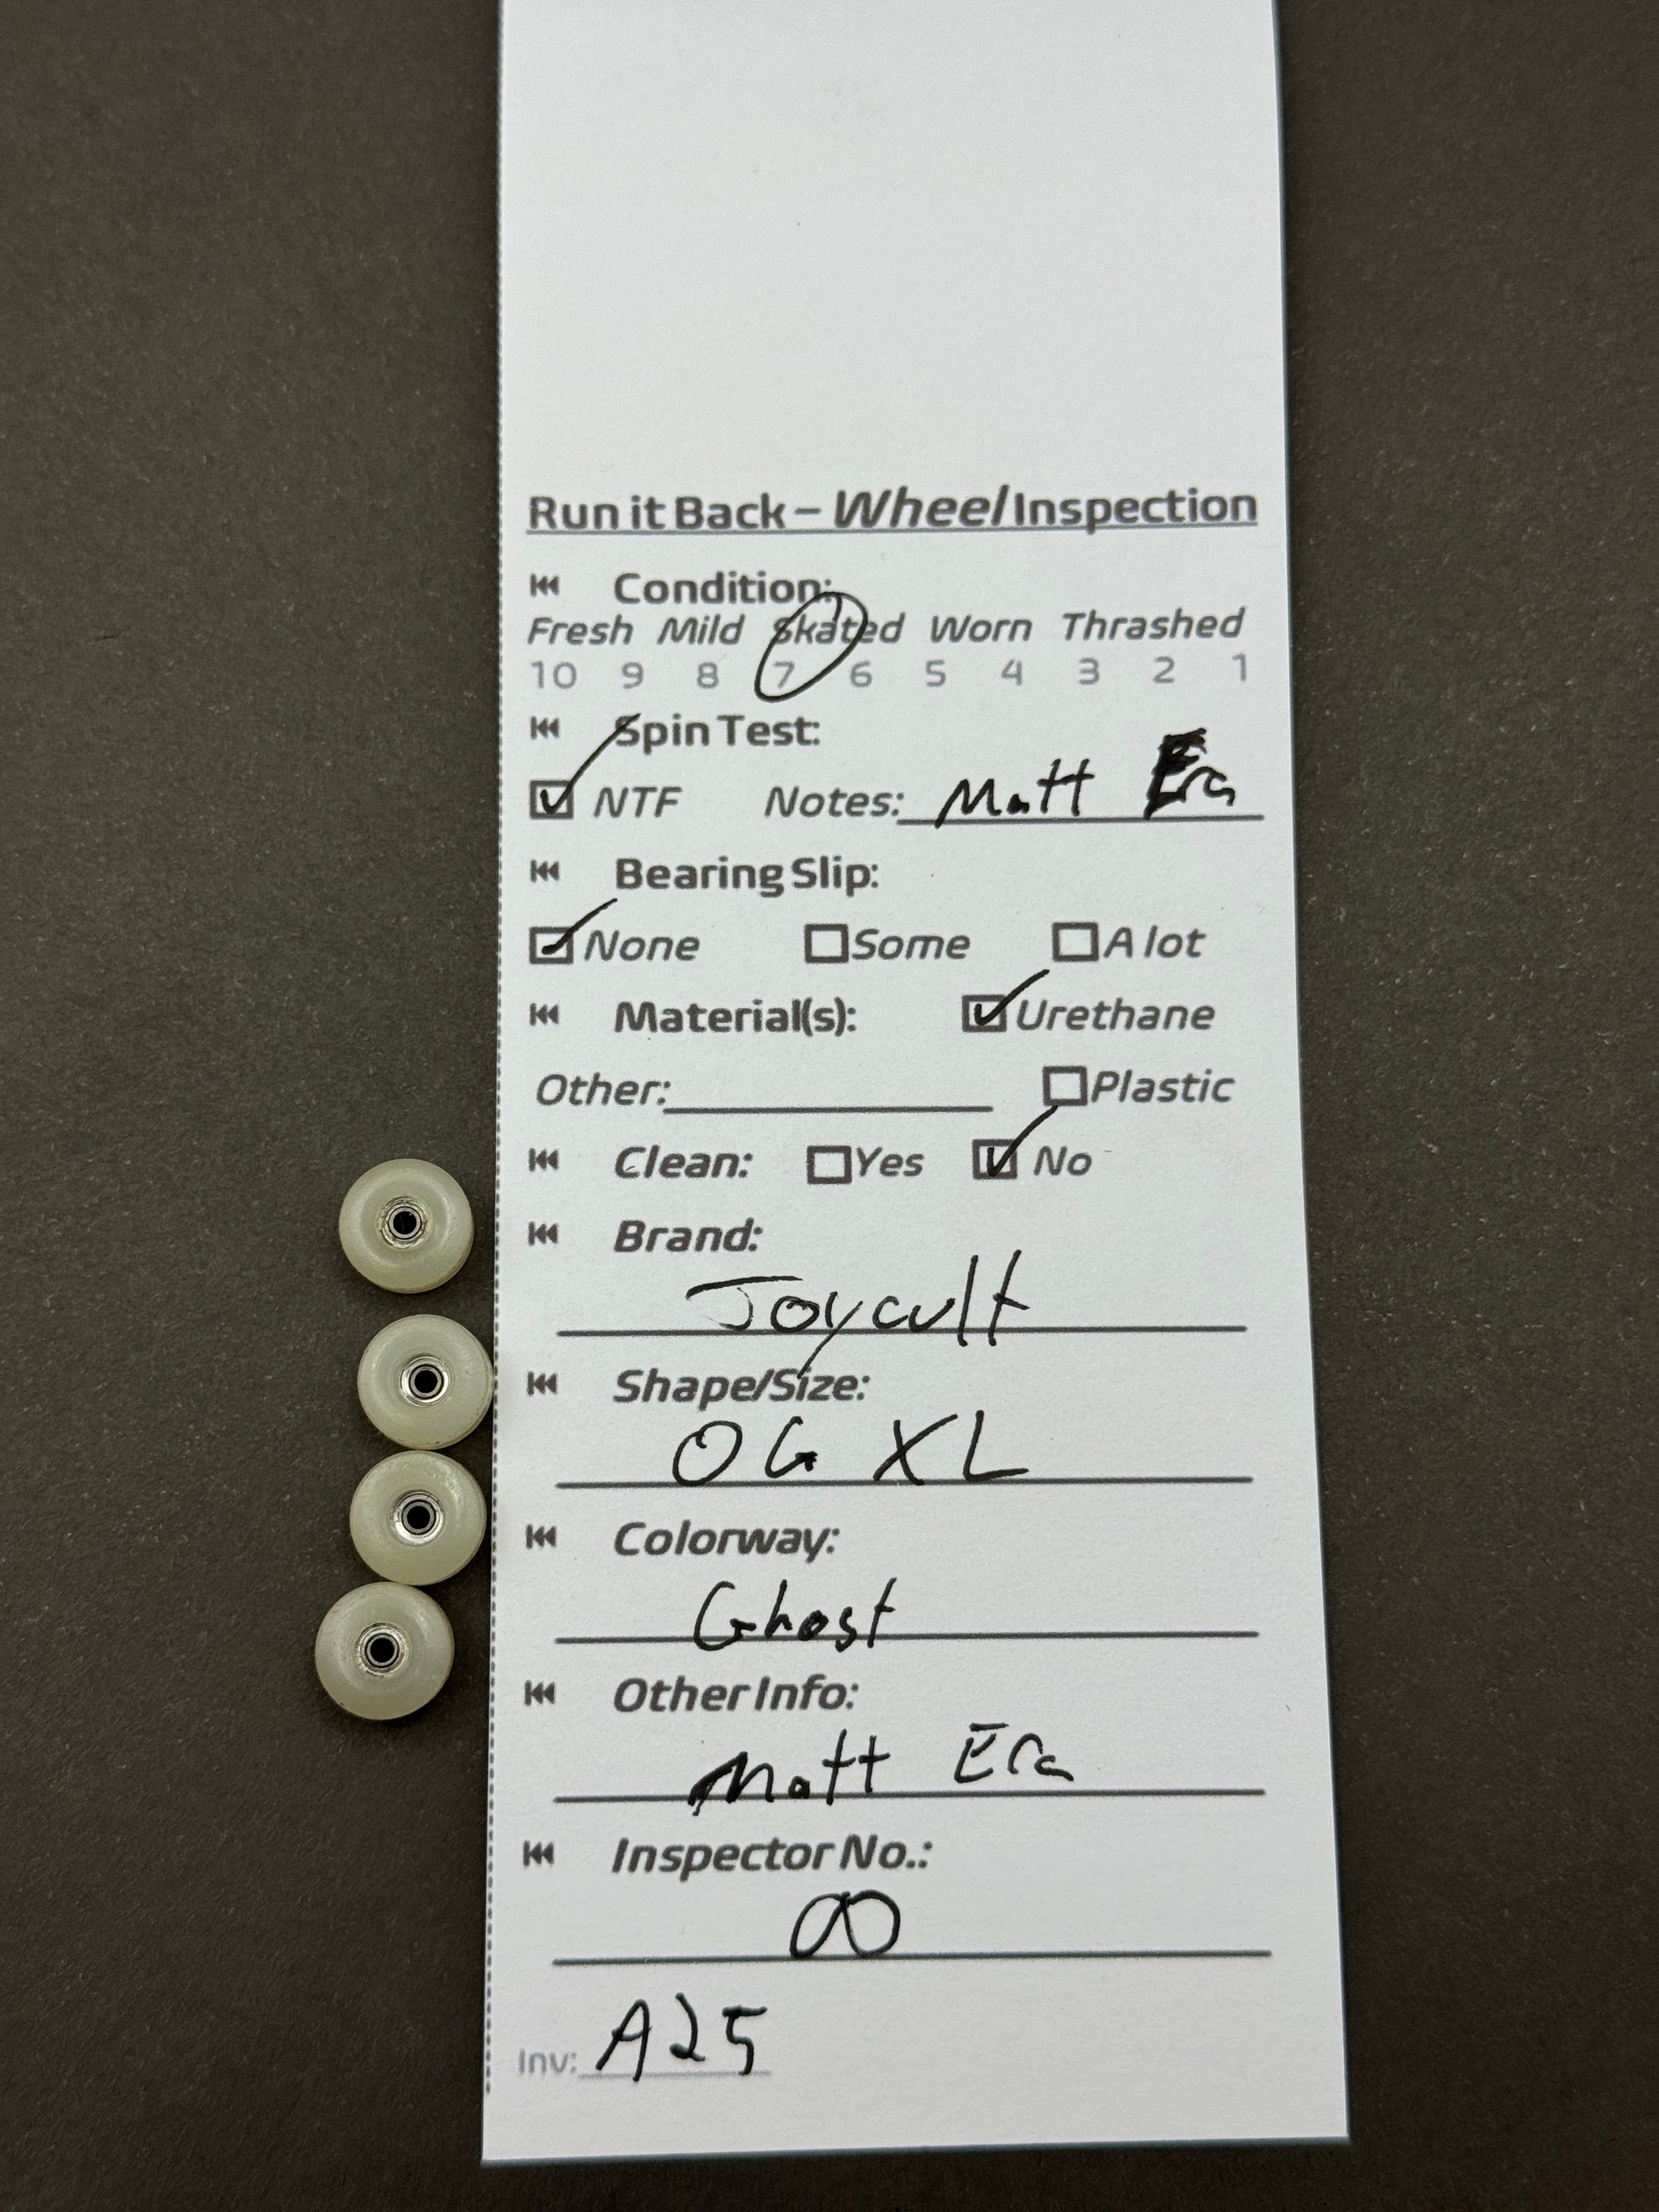 Run it Back – Wheel Inspection
Condition:
Fresh Mild Skated Worn Thrashed
10 9 8 7 6 5 4 3 2 1
Spin Test:
NTF Notes: Matt Era
Bearing Slip:
None Some A lot
Material(s): Urethane
Other: Plastic
Clean: Yes No
Brand:
Joycult
Shape/Size:
OG XL
Colorway:
Ghost
Other Info:
Matt Era
Inspector No.:
∞
Inv: A25